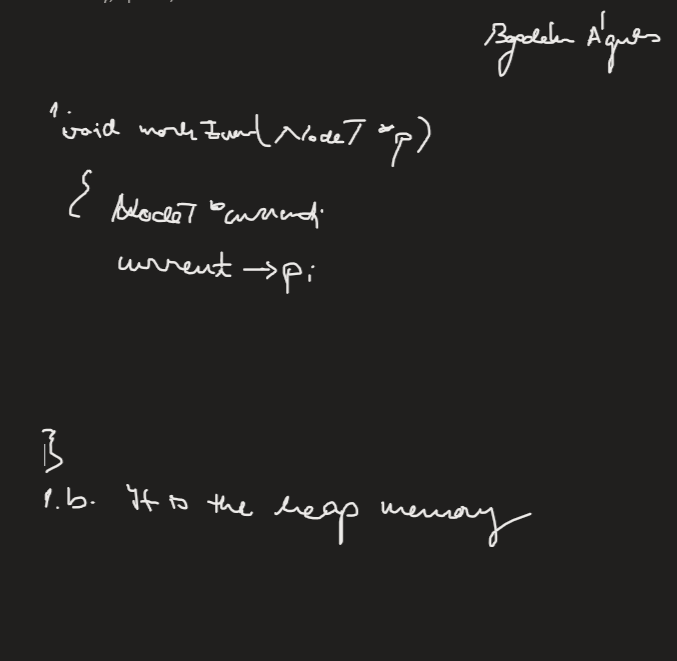 Ágnes
1. void work Even(NodeT *p)
{ NodeT *current;
current → p;
}
1.b. It is the heap memory